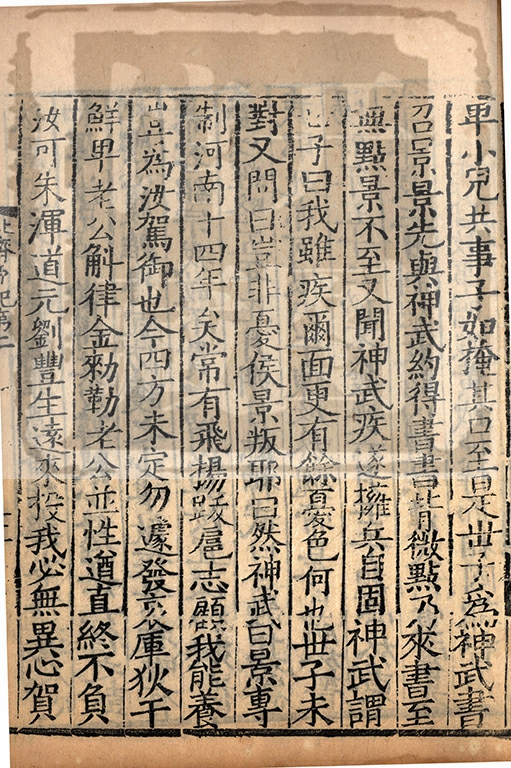 卑小兒共事子如掩其口至是世子爲神武書
召景景先與神武約得書書背微點乃來書至
無點景不至又聞神武疾遂擁兵自固神武謂
世子曰我雖疾爾面更有餘憂色何也世子未
對又問曰豈非憂侯景叛耶曰然神武曰景專
制河南十四年矣常有飛揚跋扈志顧我能養
豈為汝駕御也今四方未定勿遽發哀庫狄干
鮮卑老公斛律金勑勒老公並性遒直終不負
汝可朱渾道元劉豐生遠來投我必無異心賀
北齊帝紀第二